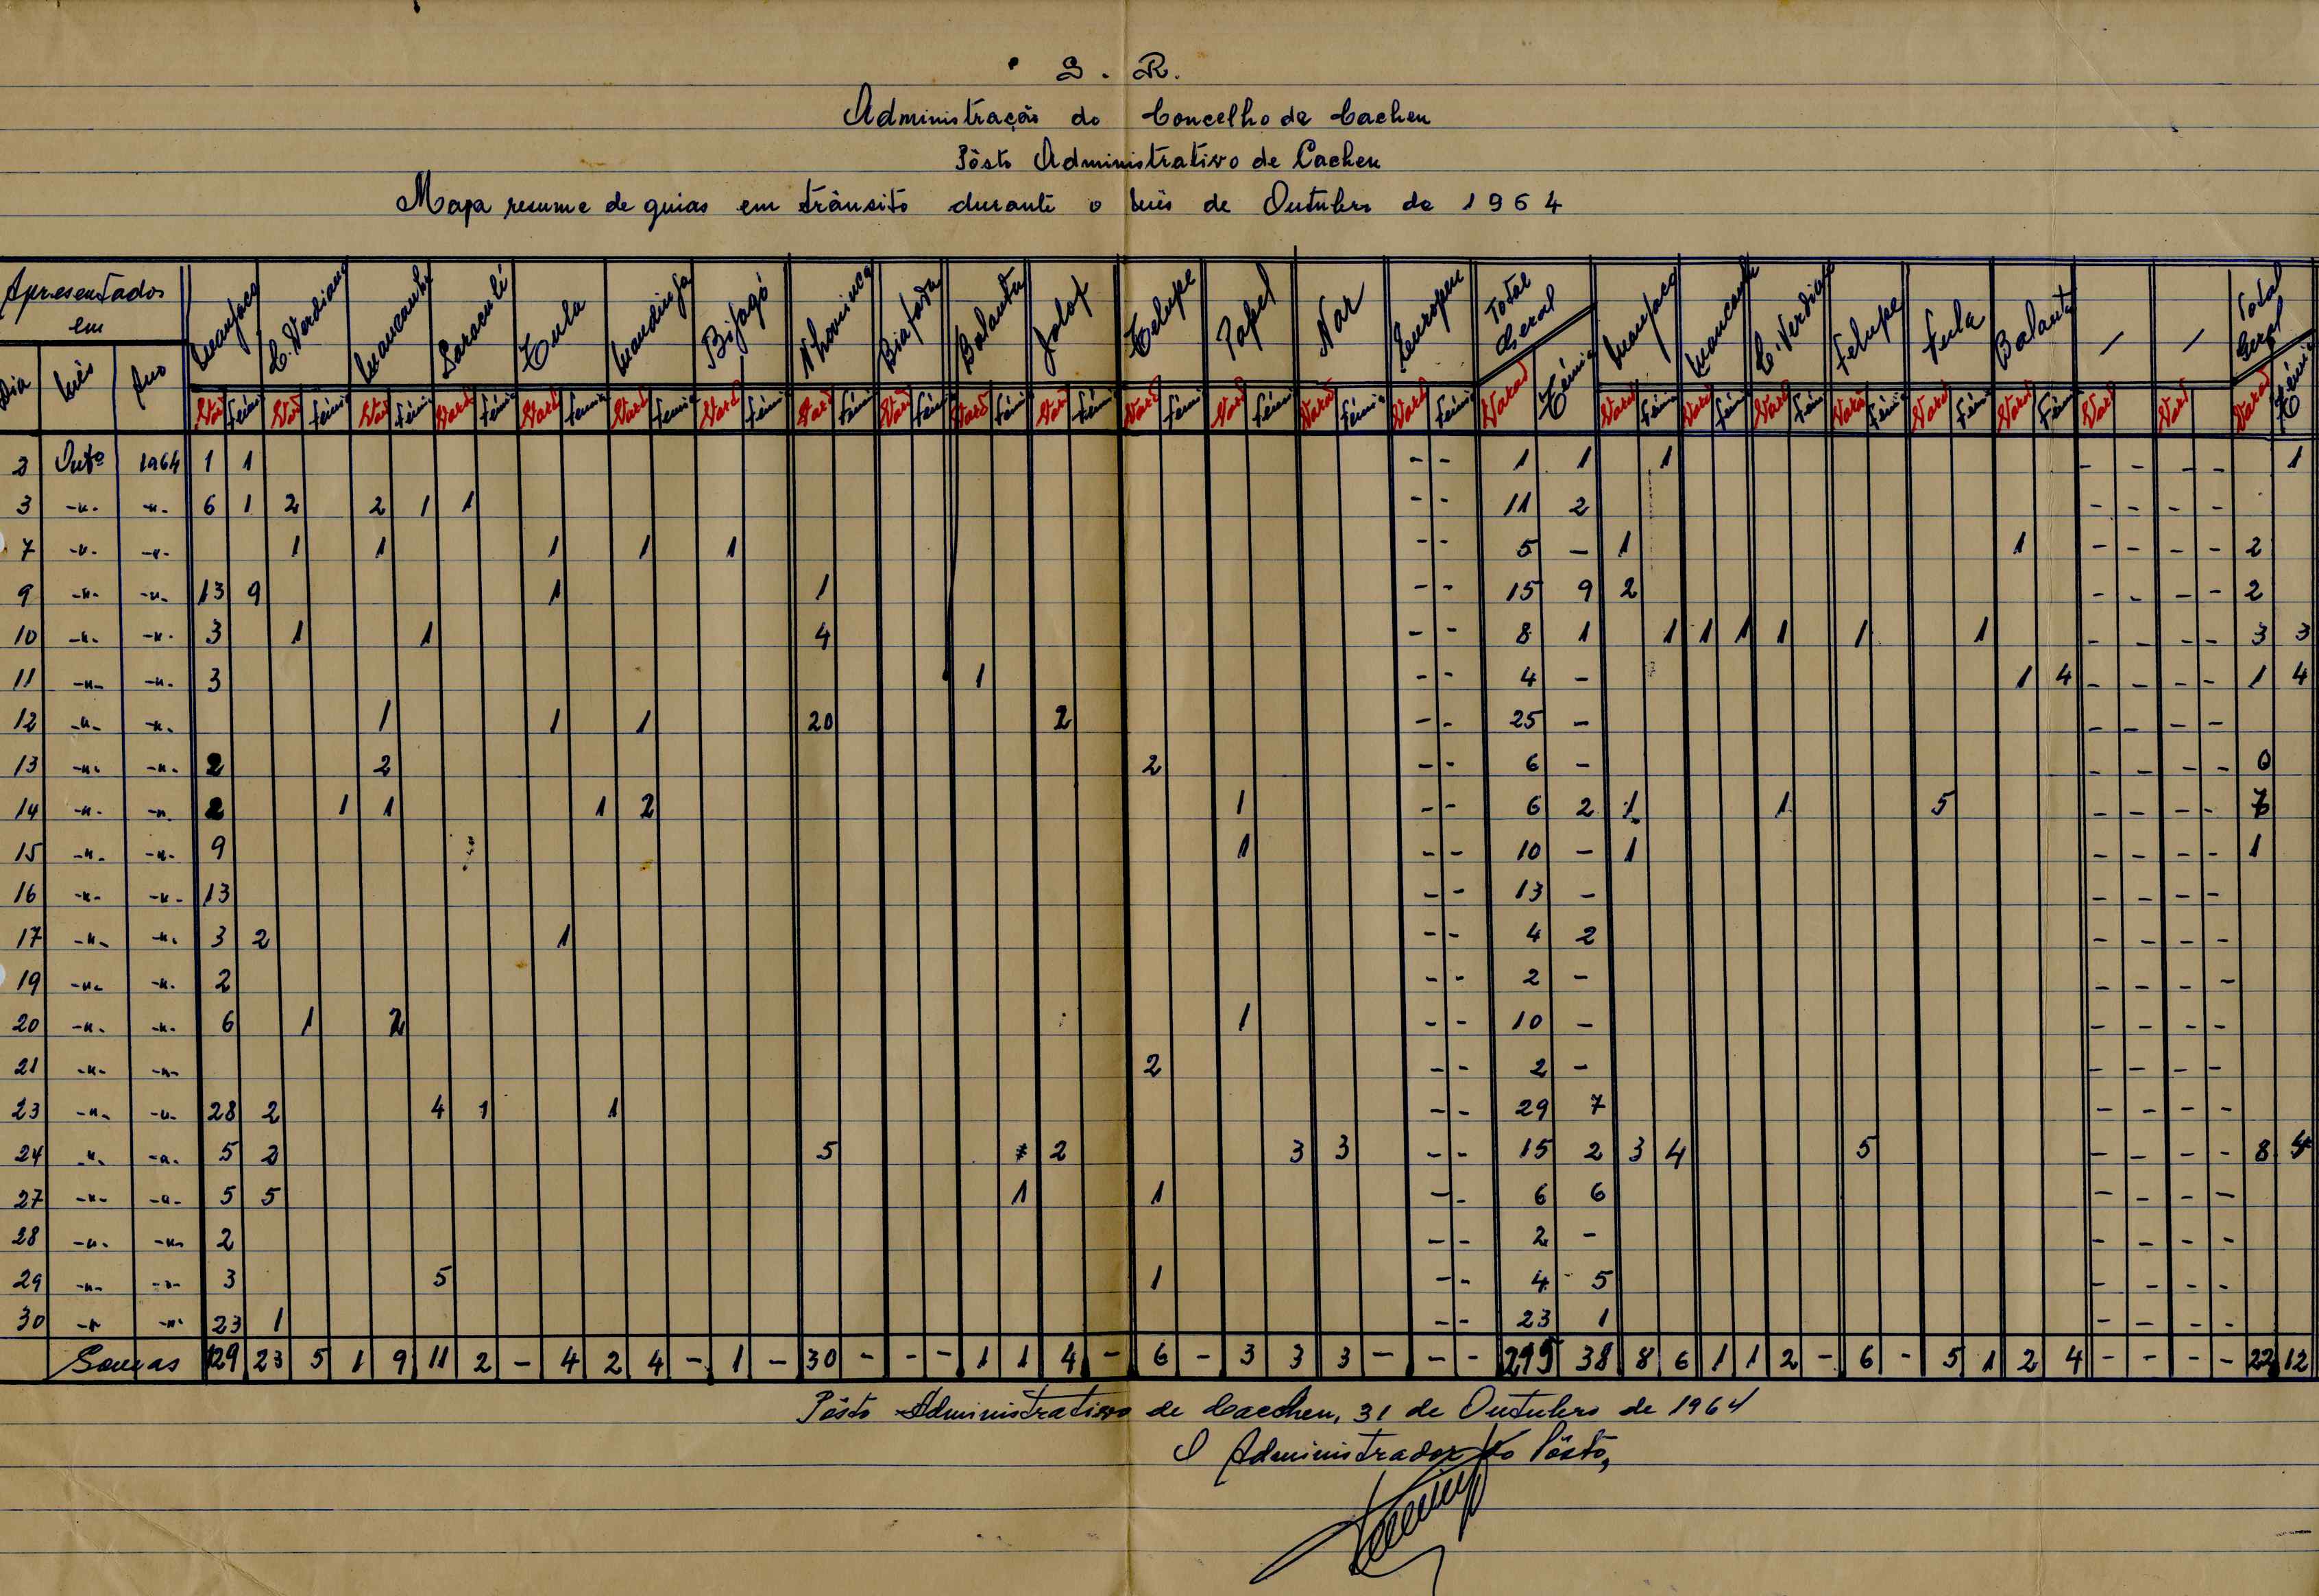 S. R.
Administração do Concelho de Cacheu
Pôsto Administrativo de Cacheu
Mapa resumo de guias em trânsito durante o mês de Outubro de 1964
Apresentados em Manjaco C. Verdiano Mancanha Saraculé Fula Mandinga Bijagó Nhominca Biafada Balanta Jolof Felupe Papel Nar Europeu Total Geral Manjaco Mancanha C. Verdiano Felupe Fula Balanta — — Total Geral
Dia Mês Ano
2 Outº 1964 1 1 - - 1 1 1 - - - - 1
3 -"- -"- 6 1 2 2 1 1 - - 11 2 - - - -
7 -"- -"- 1 1 1 1 1 - - 5 - 1 1 - - - - 2
9 -"- -"- 13 9 1 1 - - 15 9 2 - - - - 2
10 -"- -"- 3 1 1 4 - - 8 1 1 1 1 1 1 1 - - - - 3 3
11 -"- -"- 3 1 - - 4 - 1 4 - - - - 1 4
12 -"- -"- 1 1 1 20 2 - - 25 - - - - -
13 -"- -"- 2 2 2 - - 6 - - - - - 0
14 -"- -"- 2 1 1 1 2 1 - - 6 2 1 1 5 - - - - 7
15 -"- -"- 9 1 - - 10 - 1 - - - - 1
16 -"- -"- 13 - - 13 - - - - -
17 -"- -"- 3 2 1 - - 4 2 - - - -
19 -"- -"- 2 - - 2 - - - - -
20 -"- -"- 6 1 2 1 - - 10 - - - - -
21 -"- -"- 2 - - 2 - - - - -
23 -"- -"- 28 2 4 1 1 - - 29 7 - - - -
24 -"- -"- 5 2 5 2 3 3 - - 15 2 3 4 5 - - - - 8 4
27 -"- -"- 5 5 1 1 - - 6 6 - - - -
28 -"- -"- 2 - - 2 - - - - -
29 -"- -"- 3 5 1 - - 4 5 - - - -
30 -"- -"- 23 1 - - 23 1 - - - -
Somas 129 23 5 1 9 11 2 - 4 2 4 - 1 - 30 - - - 1 1 4 - 6 - 3 3 3 - - - 38 8 6 1 1 2 - 6 - 5 1 2 4 - - - - 22 12
Pôsto Administrativo de Cacheu, 31 de Outubro de 1964
O Administrador do Pôsto,